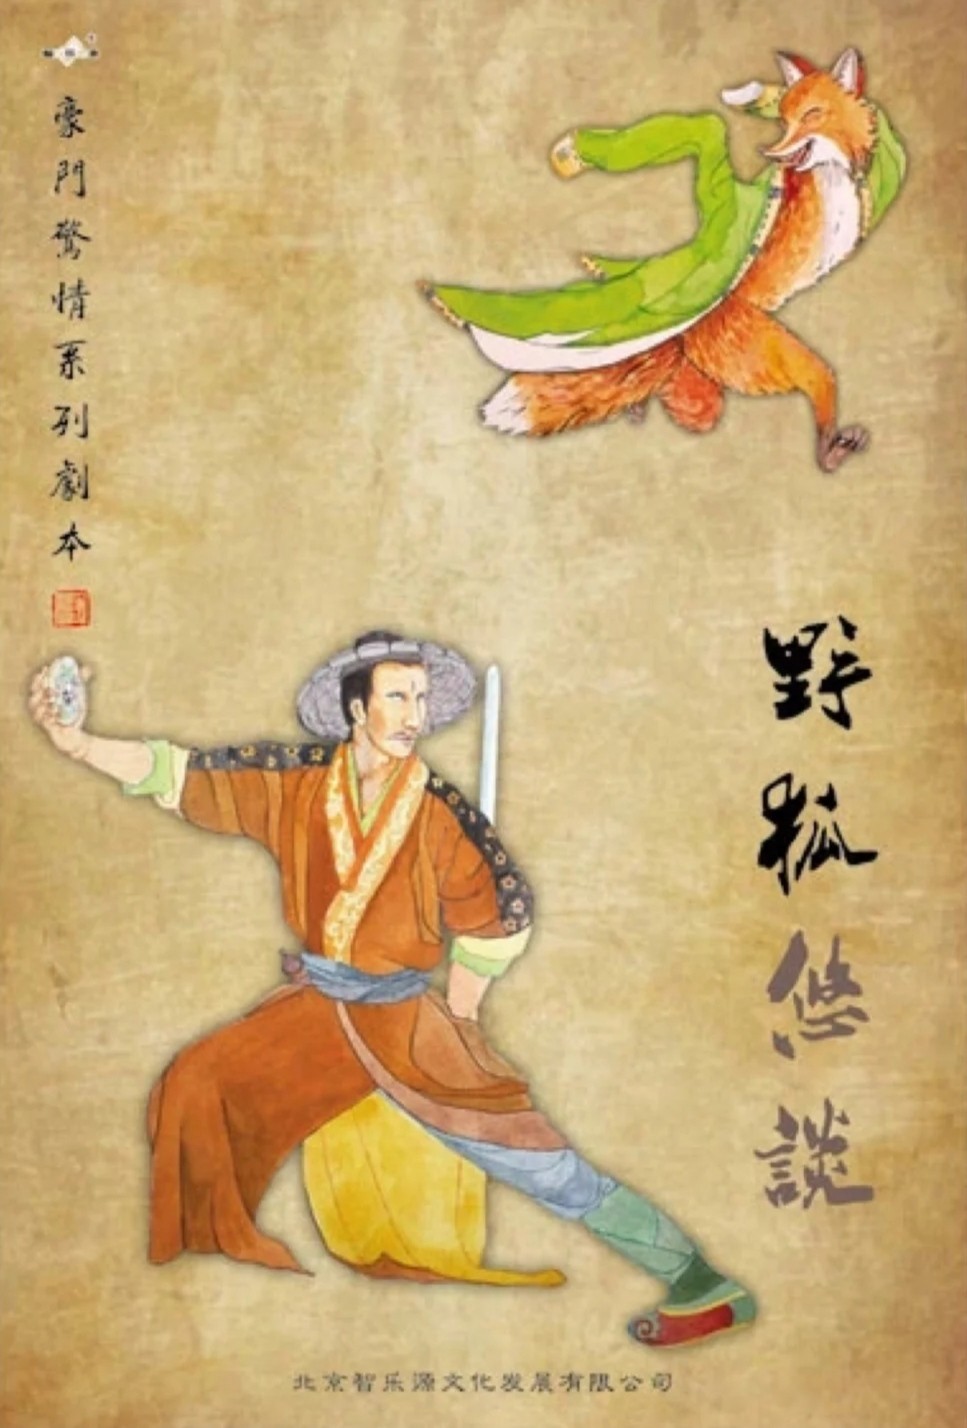 豪門驚情系列劇本
野狐悠談
北京智乐源文化发展有限公司